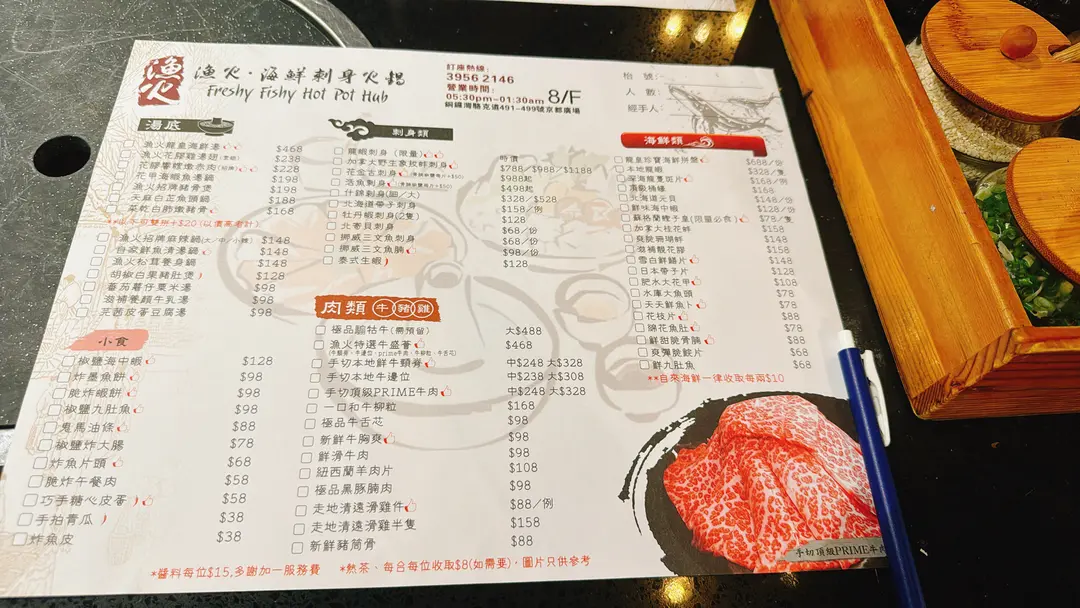 漁火
漁火·海鮮刺身火鍋
Freshy Fishy Hot Pot Hub
訂座熱線:
3956 2146
營業時間:
05:30pm~01:30am 8/F
銅鑼灣駱克道491-499號京都廣場
枱 號:
人 數:
經手人:
湯底
漁火龍皇海鮮湯 $468
漁火花膠雞湯翅 $238
花膠響螺燉赤肉(招牌) $228
花甲海鮮魚湯鍋 $198
漁火招牌豬骨煲 $198
天麻白芷魚頭鍋 $188
菜乾白肺燉豬骨 $168
可雙拼+$20(以價高者計)
漁火招牌麻辣鍋(大/中/小辣) $148
鮮魚清湯鍋 $148
漁火松茸養身鍋 $148
胡椒白果豬肚煲 $128
番茄薯仔粟米湯 $98
滋補養顏牛乳湯 $98
芫茜皮蛋豆腐湯 $98
小食
椒鹽海中蝦 $128
炸墨魚餅 $98
脆炸蝦餅 $98
椒鹽九肚魚 $98
鬼馬油條 $88
椒鹽炸大腸 $78
炸魚片頭 $68
脆炸午餐肉 $58
巧手糖心皮蛋 $58
手拍青瓜 $38
炸魚皮 $38
刺身類
龍蝦刺身 (限量) 時價
加拿大野生象拔蚌刺身 $788/$988/$1188
花金古刺身 $988起
活魚刺身 $498起
什錦刺身(細/大) $328/$528
北海道帶子刺身 $158/例
牡丹蝦刺身(2隻) $128/份
北寄貝刺身 $68/份
挪威三文魚刺身 $68/份
挪威三文魚腩 $98/份
泰式生蝦 $128
肉類 牛豬雞
極品腩牯牛(需預留) 大$488
漁火特選牛盛薈 $468
手切本地鮮牛頸脊 中$248 大$328
手切本地牛邊位 中$238 大$308
手切頂級PRIME牛肉 中$248 大$328
一口和牛柳粒 $168
極品牛舌芯 $98
新鮮牛胸爽 $98
鮮滑牛肉 $98
紐西蘭羊肉片 $108
極品黑豚腩肉 $98
走地清遠滑雞件 $88/例
走地清遠滑雞半隻 $158
新鮮豬筒骨 $88
海鮮類
龍皇珍寶海鮮拼盤 $688/份
本地龍蝦 $328/隻
深海龍躉斑片 $168/例
頂級桶蠔 $168
北海道元貝 $148/份
鮮味海中蝦 $128/份
蘇格蘭蟶子皇(限量必食) $78/隻
加拿大桂花蚌 $158
爽脆珊瑚蚌 $148
滋補靚花膠 $158
雪白鮮鱔片 $148
日本帶子片 $128
肥水大花甲 $108
水庫大魚頭 $78
天天鮮魚卜 $78
花枝片 $78
綿花魚肚 $78
鮮甜脆骨腩 $88
爽彈脆鯇片 $68
鮮九肚魚 $68
**自來海鮮一律收取每兩$10
手切頂級PRIME牛肉
*醬料每位$15,多謝加一服務費 *熱茶、每合每位收取$8(如需要), 圖片只供參考